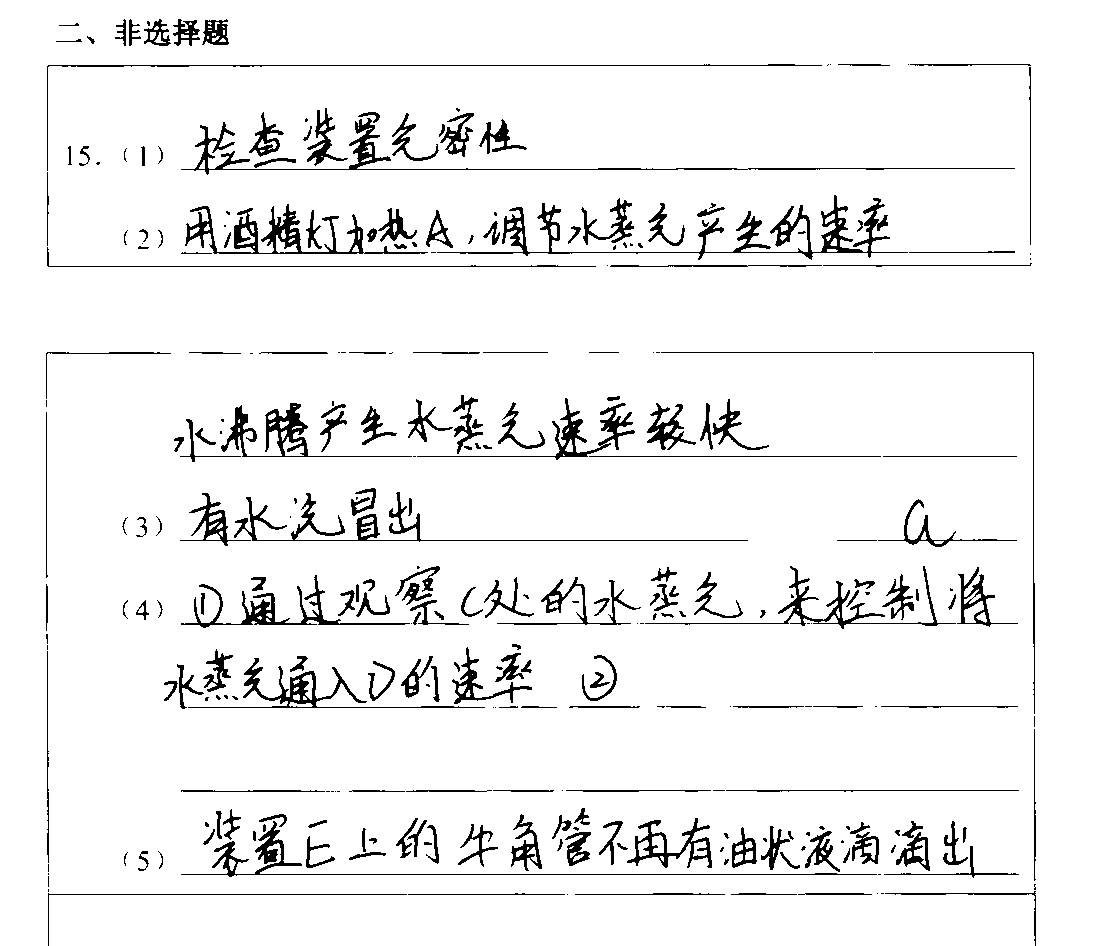 二、非选择题
15.(1) 检查装置气密性
(2) 用酒精灯加热A,调节水蒸气产生的速率
水沸腾产生水蒸气速率较快
(3) 有水汽冒出 a
(4) ①通过观察C处的水蒸气,来控制将
水蒸气通入D的速率 ②
(5) 装置E上的牛角管不再有油状液滴滴出